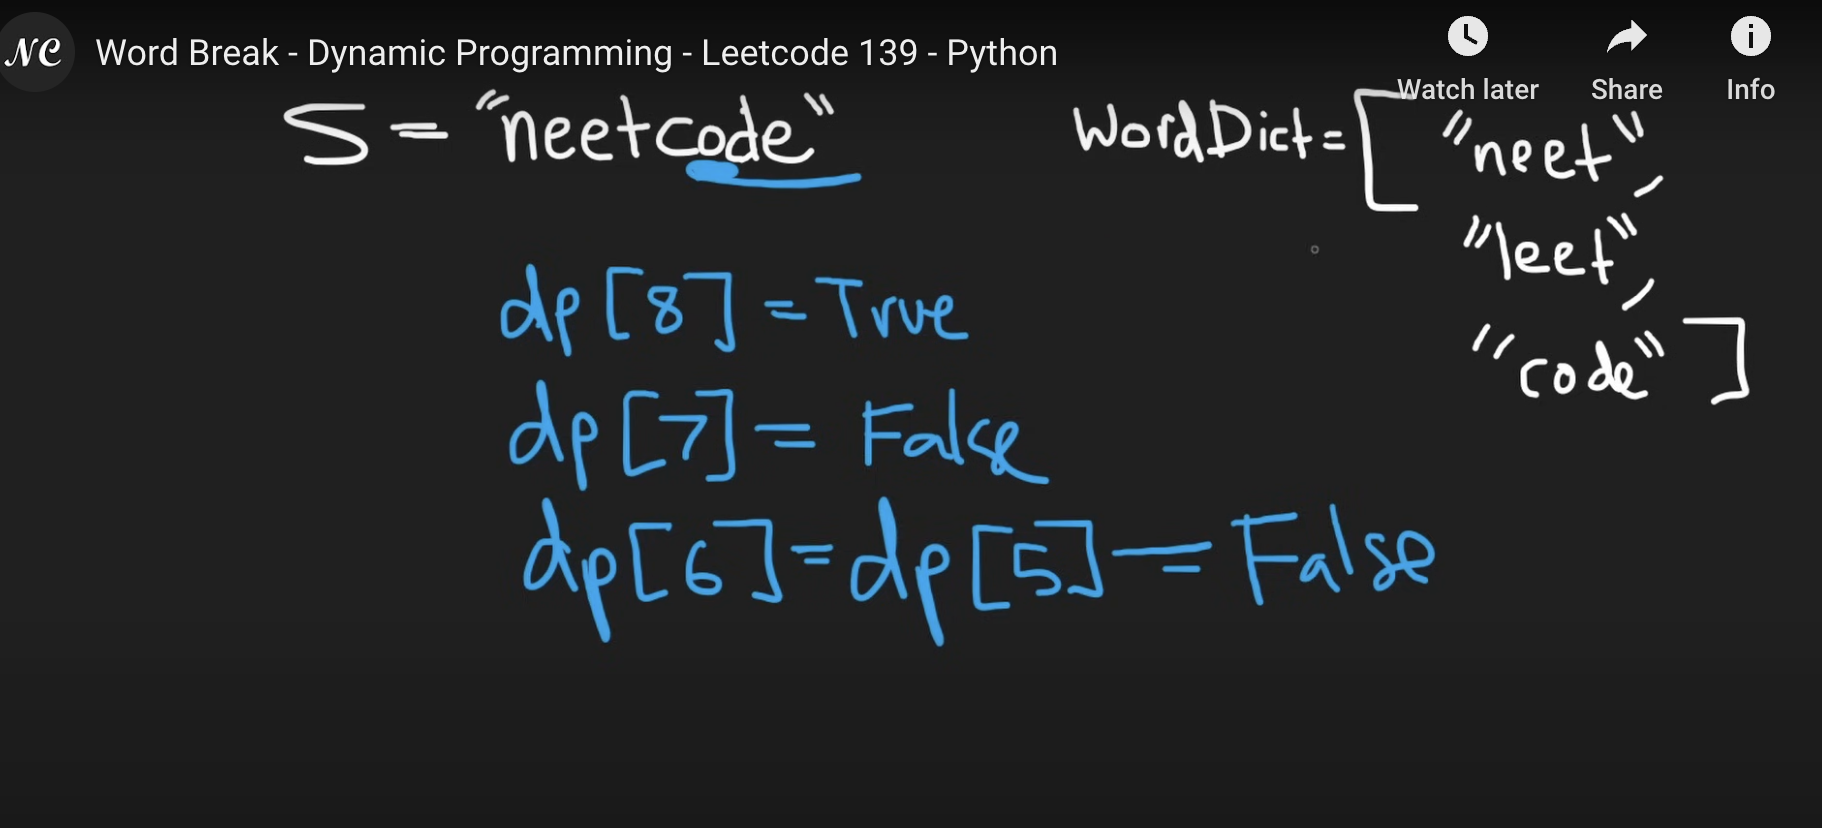 NC Word Break - Dynamic Programming - Leetcode 139 - Python
Watch later Share Info
S = "neetcode" WordDict = ["neet",
"leet",
"code"]
dp[8] = True
dp[7] = False
dp[6] = dp[5] = False